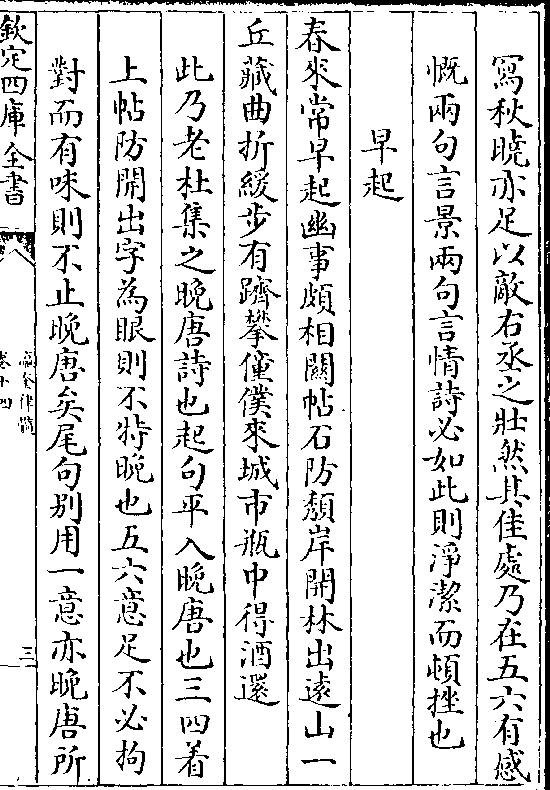 寫秋曉亦足以敵右丞之壯然其佳處乃在五六有感
慨兩句言景兩句言情詩必如此則淨潔而頓挫也
早起
春來常早起幽事頗相關帖石防頹岸開林出遠山一
丘藏曲折緩步有躋攀僮僕來城市瓶中得酒還
此乃老杜集之晚唐詩也起句平入晚唐也三四着
上帖防開出字為眼則不特晚也五六意足不必拘
對而有味則不止晚唐矣尾句別用一意亦晚唐所
欽定四庫全書
瀛奎律髓
卷十四
三